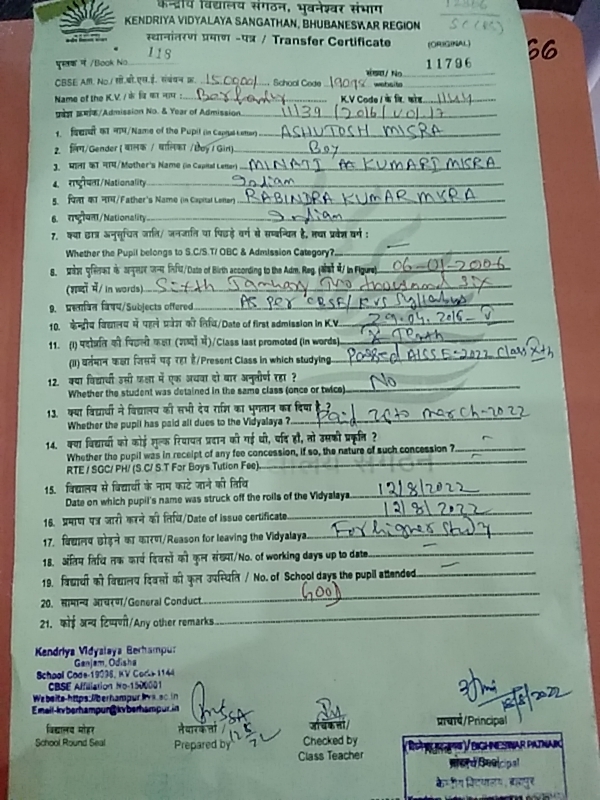 केन्द्रीय विद्यालय संगठन, भुवनेश्वर संभाग
KENDRIYA VIDYALAYA SANGATHAN, BHUBANESWAR REGION
स्थानांतरण प्रमाण -पत्र / Transfer Certificate
(ORIGINAL)
66
पुस्तक नं /Book No 118 संख्या/ No. 11796
CBSE Aff. No./सी.बी.एस.ई. संबंधन क्र. 1500001 School Code 19098 website
Name of the K.V./के वि का नाम : Berhampur K.V Code / के वि. कोड 1144
प्रवेश क्रमांक/Admission No. & Year of Admission 11139 /2016/V0/17
1. विद्यार्थी का नाम/Name of the Pupil (in Capital Letter) ASHUTOSH MISRA
2. लिंग/Gender ( बालक / बालिका /Boy / Girl) Boy
3. माता का नाम/Mother's Name (in Capital Letter) MINATI KUMARI MISRA
4. राष्ट्रीयता/Nationality Indian
5. पिता का नाम/Father's Name (in Capital Letter) RABINDRA KUMAR MISRA
6. राष्ट्रीयता/Nationality Indian
7. क्या छात्र अनुसूचित जाति/ जनजाति या पिछड़े वर्ग से सम्बन्धित है, तथा प्रवेश वर्ग :
Whether the Pupil belongs to S.C/S.T/ OBC & Admission Category? —
8. प्रवेश पुस्तिका के अनुसार जन्म तिथि/Date of Birth according to the Adm. Reg. (अंकों में/ in Figure) 06-01-2006
(शब्दों में/ in words) Sixth January Two thousand six
9. प्रस्तावित विषय/Subjects offered AS per CBSE/KVS Syllabus
10. केन्द्रीय विद्यालय में पहले प्रवेश की तिथि/Date of first admission in K.V. 29.04.2016-V
11. (I) पदोन्नति की पिछली कक्षा (शब्दों में)/Class last promoted (in words) X Tenth
(II) वर्तमान कक्षा जिसमें पढ़ रहा है/Present Class in which studying Passed AISSE-2022 Class Xth
12. क्या विद्यार्थी उसी कक्षा में एक अथवा दो बार अनुतीर्ण रहा ?
Whether the student was detained in the same class (once or twice) No
13. क्या विद्यार्थी ने विद्यालय की सभी देय राशि का भुगतान कर दिया है ?
Whether the pupil has paid all dues to the Vidyalaya ? Paid to march-2022
14. क्या विद्यार्थी को कोई शुल्क रियायत प्रदान की गई थी, यदि हाँ, तो उसकी प्रकृति ?
Whether the pupil was in receipt of any fee concession, if so, the nature of such concession ?
RTE / SGC/ PH/ (S.C/ S.T For Boys Tution Fee)
15. विद्यालय से विद्यार्थी के नाम काटे जाने की तिथि
Date on which pupil's name was struck off the rolls of the Vidyalaya 12/8/2022
16. प्रमाण पत्र जारी करने की तिथि/Date of issue certificate 12/8/2022
17. विद्यालय छोड़ने का कारण/Reason for leaving the Vidyalaya For higher study
18. अंतिम तिथि तक कार्य दिवसों की कुल संख्या/No. of working days up to date —
19. विद्यार्थी की विद्यालय दिवसों की कुल उपस्थिति / No. of School days the pupil attended —
20. सामान्य आचरण/General Conduct GOOD
21. कोई अन्य टिप्पणी/Any other remarks
Kendriya Vidyalaya Berhampur
Ganjam, Odisha
School Code-19098, KV Code-1144
CBSE Affiliation No-1500001
Website-https://berhampur.kvs.ac.in
Email-kvberhampur@kvberhampur.in
विद्यालय मोहर
School Round Seal
तैयारकर्ता
Prepared by
जांचकर्ता
Checked by
Class Teacher
प्राचार्य/Principal
BIGHNESWAR PATNAIK